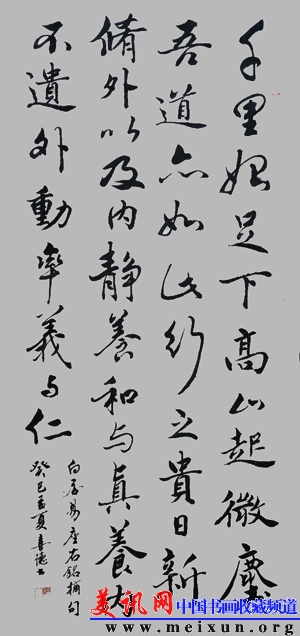 千里始足下高山起微塵
吾道亦如此行之貴日新
脩外以及内静養和与真養内
不遺外動率義与仁
白居易座右銘摘句
癸巳孟夏
美讯网 中国书画收藏频道
www.meixun.org